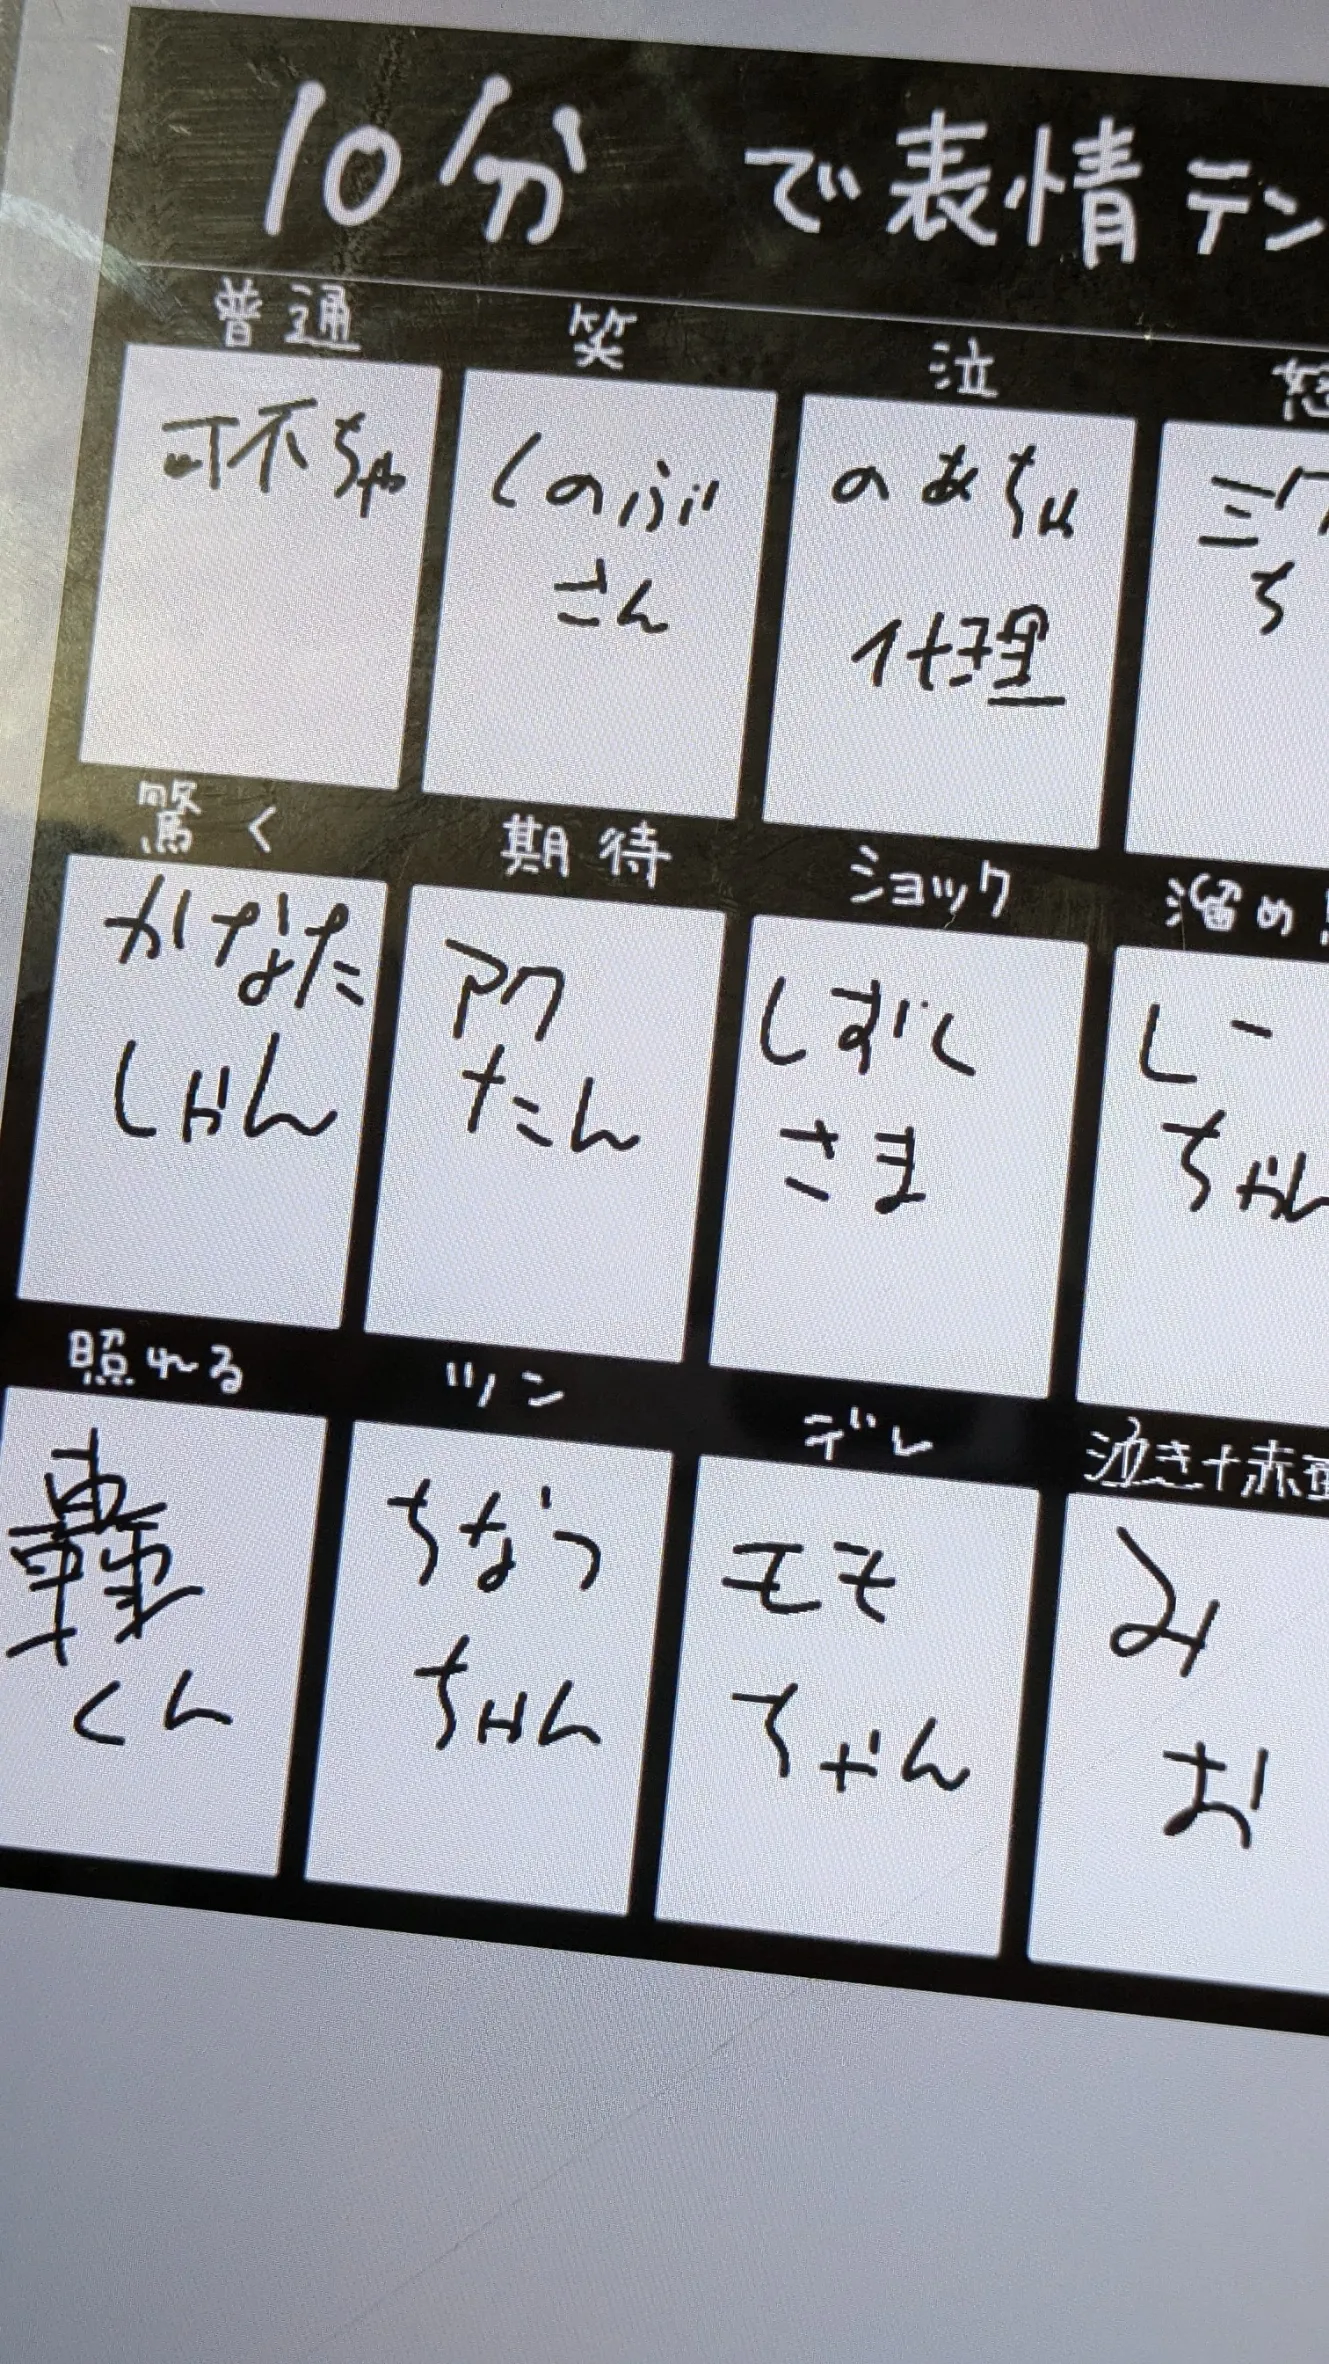 10分で表情テン
普通
笑
泣
怒
可不ちゃ
しのぶ
さん
のあちゃ
代理
ミク
ち
驚く
期待
ショック
溜め
かなた
しゃん
アク
たん
しずく
さま
しー
ちゃん
照れる
ツン
デレ
泣き+赤面
轟
くん
ちなつ
ちゃん
モモ
ちゃん
み
お